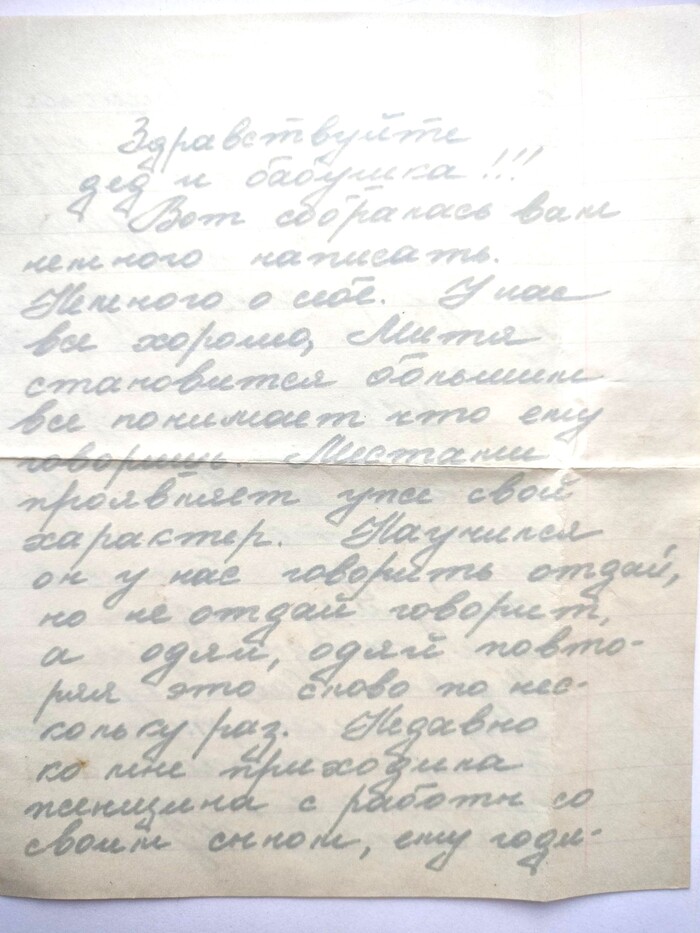 Здравствуйте
дед и бабушка!!!
Вот собралась вам
немного написать.
Немного о себе. У нас
все хорошо, Митя
становится большим
все понимает что ему
говоришь. Местами
проявляет уже свой
характер. Научился
он у нас говорить отдай,
но не отдай говорит,
а одяй, одяй повто-
ряя это слово по нес-
кольку раз. Недавно
ко мне приходила
женщина с работы со
своим сыном, ему годи-